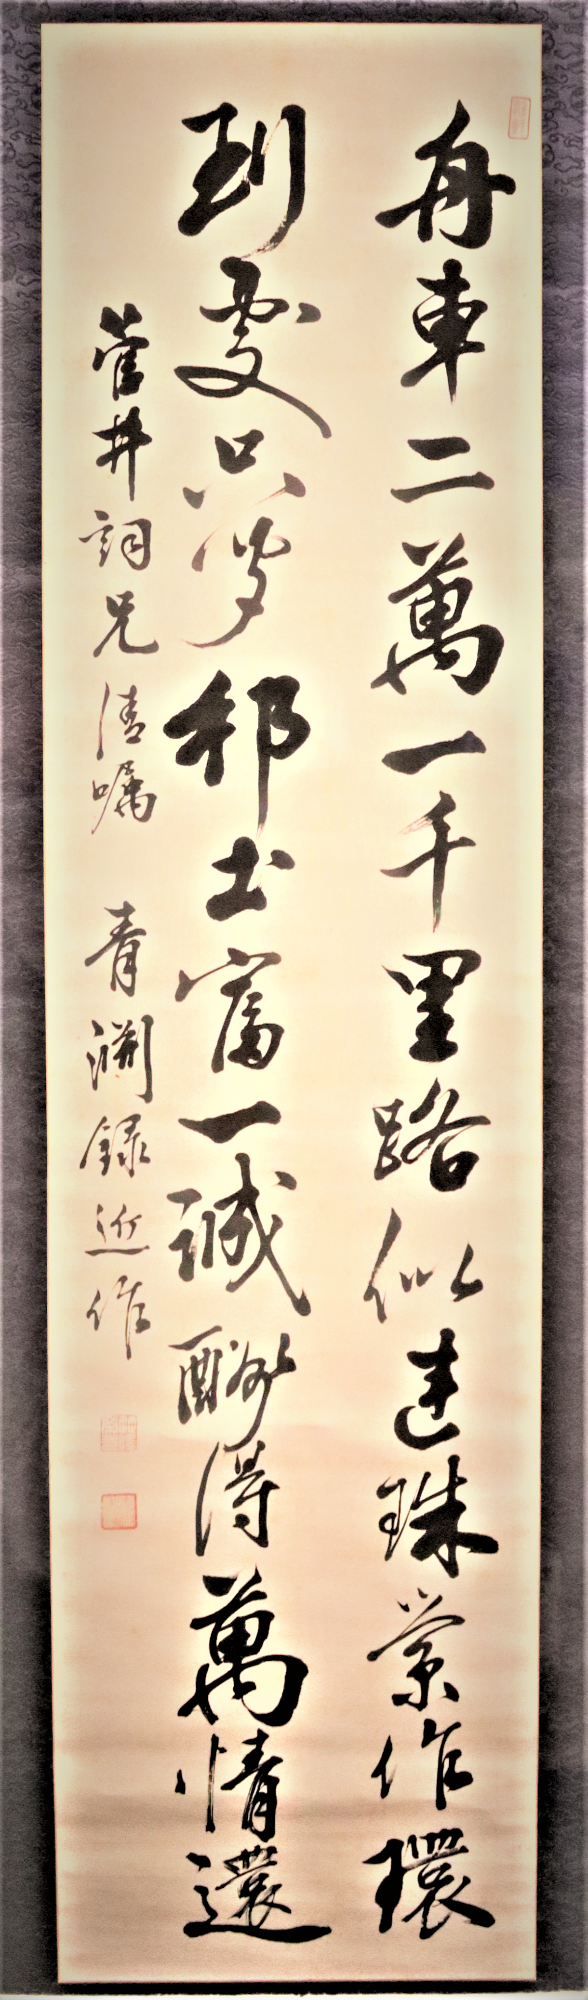 舟車二萬一千里路似連珠縈作環
到處只邦土富一誠酬得萬情還
菅井詞兄清嘱 青淵録近作